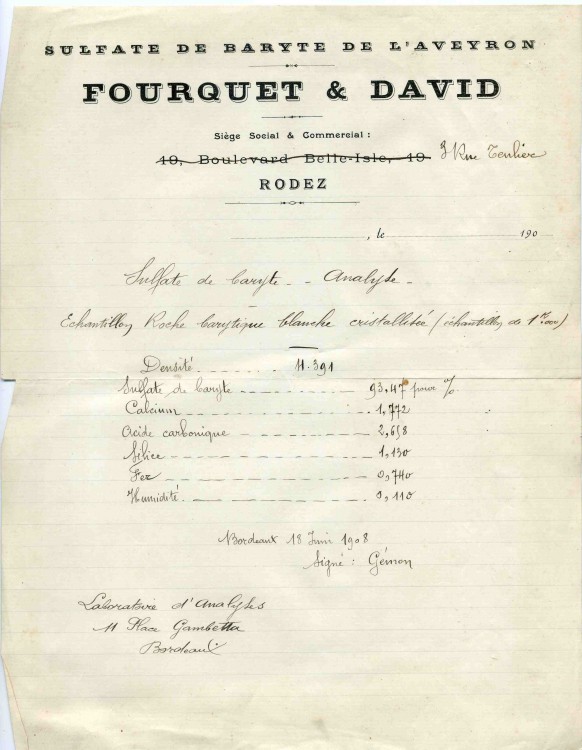 SULFATE DE BARYTE DE L'AVEYRON
FOURQUET & DAVID
Siège Social & Commercial :
19, Boulevard Belle-Isle, 19. 3 Rue Tenlier
RODEZ
, le 190
Sulfate de baryte - Analyse -
Echantillon Roche barytique blanche cristallisée (échantillon de
Densité 4.391
Sulfate de baryte 93,47 pour %
Calcium 1,772
Acide carbonique 2,658
Silice 1,130
Fer 0,740
Humidité 0,110
Bordeaux 18 Juin 1908
Signé : Gémon
Laboratoire d'Analyses
11 Place Gambetta
Bordeaux